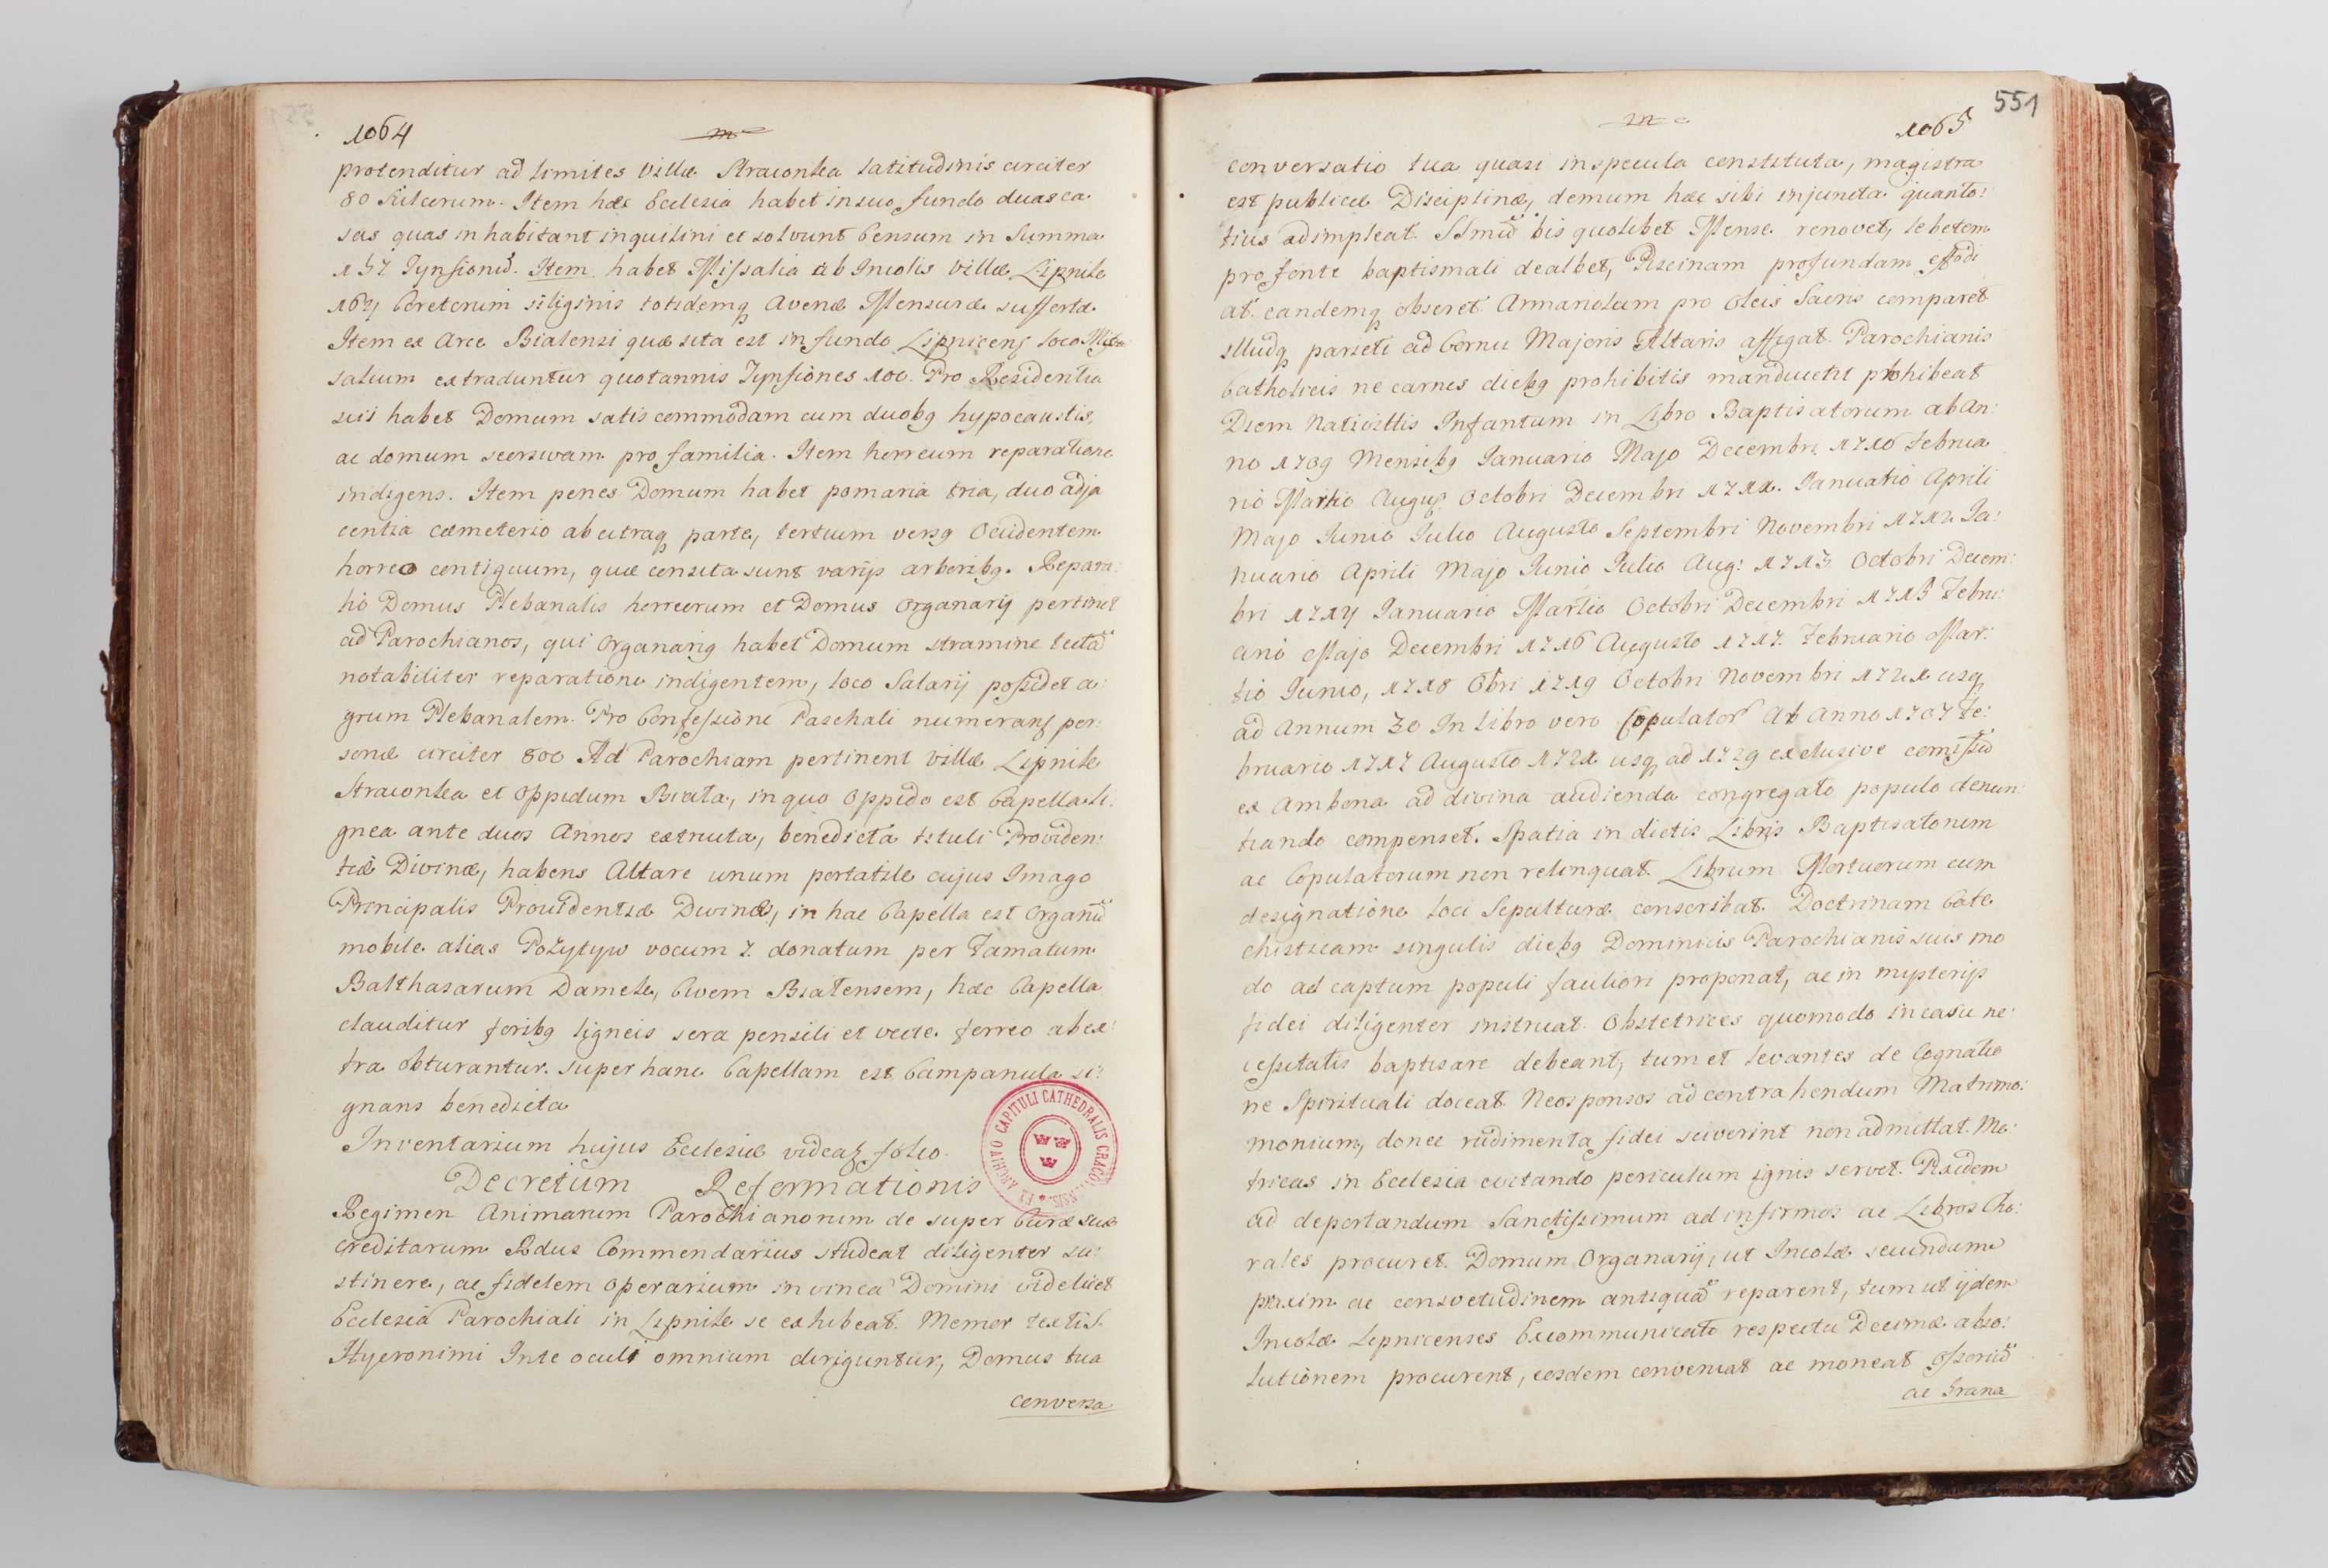 1064
m
protenditur ad limites Villæ Straconka latitudinis circiter
80 Sulcorum. Item hæc Ecclesia habet in suo fundo duas ca
sas quas inhabitant inquilini et solvunt Censum in Summa
137 Tynfionũ. Item habet Missalia ab Incolis Villæ Lipnik
Coretorum siliginis totidemq Avenæ Mensuræ sufferta.
Item ex Arce Bialensi quæ sita est in fundo Lipnicens loco Mis
salium extraduntur quotannis Tynfiones 100. Pro Residentia
sui habet Domum satis commodam cum duobq hypocaustis,
ac domum seorsivam pro familia. Item horreum reparatione
indigens. Item penes Domum habet pomaria tria, duo adja
centia cæmeterio ab utraq parte, tertium versq Occidentem
horreo contiguum, quæ consita sunt varijs arboribq. Repara:
tio Domus Plebanalis horreorum et Domus Organarij pertinet
ad Parochianos, qui Organariq habet Domum stramine tectã
notabiliter reparatione indigentem, loco Salarij possidet a:
grum Plebanalem. Pro Confessione Paschali numerans per:
sonæ circiter 800 Ad Parochiam pertinent villæ Lipnik
Straconka et Oppidum Biała, in quo Oppido est Capella li:
gnea ante duos Annos extructa, benedicta tituli Providen:
tiæ Divinæ, habens Altare unum portatile cujus Imago
Principalis Providentiæ Divinæ, in hac Capella est Organũ
mobile alias Pożytyw vocum 7. donatum per Famatum
Balthasarum Damek, Civem Bialensem, hæc Capella
clauditur foribq ligneis sera pensili et vecte ferreo ab ex:
tra obturantur. super hanc Capellam est Campanula si:
gnans benedicta
Inventarium hujus Ecclesiæ videaq folio
Decretum Reformationis
Regimen Animarum Parochianorum de super Curæ suæ
creditarum Rdus Commendarius studeat diligenter su:
stinere, ac fidelem operarium in vinea Domini videlicet
Ecclesiâ Parochiali in Lipnik se exhibeat. Memor textis S.
Hyeronimi In te oculi omnium diriguntur, Domus tua
conversa
EX ARCHIVO CAPITULI CATHEDRALIS CRACOVIENSIS.
551
m
1065
conversatio tua quasi in specula constituta, magistra
est publicæ Disciplinæ, demum hæc sibi injuncta quanto:
tius adimpleat. SSmũ bis quolibet Mense renovet, lebetem
pro fonte baptismali dealbet, Piscinam profundam effodi
at. eandemq obseret Armariolum pro Oleis Sacris comparet
illudq parieti ad Cornu Majoris Altaris affigat. Parochianis
Catholicis ne carnes diebq prohibitis manducent prohibeat
Diem Nativittis Infantum in Libro Baptisatorum ab An:
no 1709 Mensibq Ianuario Majo Decembri 1710 Februa
rio Martio Augus Octobri Decembri 1711. Ianuario Aprili
Majo Iunio Iulio Augusto Septembri Novembri 1712 Ia:
nuario Aprili Majo Iunio Iulio Aug: 1713 Octobri Decem:
bri 1714 Ianuario Martio Octobri Decembri 1715 Febru:
ario Majo Decembri 1716 Augusto 1717. Februario Mar:
tio Iunio, 1718 Obri 1719 Octobri Novembri 1721 usq
ad Annum 30 In Libro vero Copulator Ab Anno 1707 Fe:
bruario 1717 Augusto 1721 usq ad 1729 exclusive comissũ
ex Ambona ad divina audienda congregato populo denun:
tiando compenset. Spatia in dictis Libris Baptisatorum
ac Copulatorum non relinquat. Librum Mortuorum cum
designatione loci Sepulturæ conscribat. Doctrinam Cate
chisticam singulis diebq Dominicis Parochianis suis mo
do ad captum populi faciliori proponat, ac in mysterijs
fidei diligenter instruat. Obstetrices quomodo in casu ne:
cessitatis baptisare debeant, tum et levantes de Cognatio
ne Spirituali doceat. Neosponsos ad contrahendum Matrimo:
monium, donec rudimenta fidei sciverint non admittat. Me:
tricas in Ecclesia evitando periculum ignis servet. Pixidem
ad deportandum Sanctissimum ad infirmos ac Libros Cho:
rales procuret. Domum Organarij, ut Incolæ secundum
praxim ac consvetudinem antiquã reparent, tum ut ijdem
Incolæ Lipnicenses Excommunicato respectu Decimæ abso:
lutionem procurent, eosdem conveniat ac moneat Ossoriũ
ac Grana